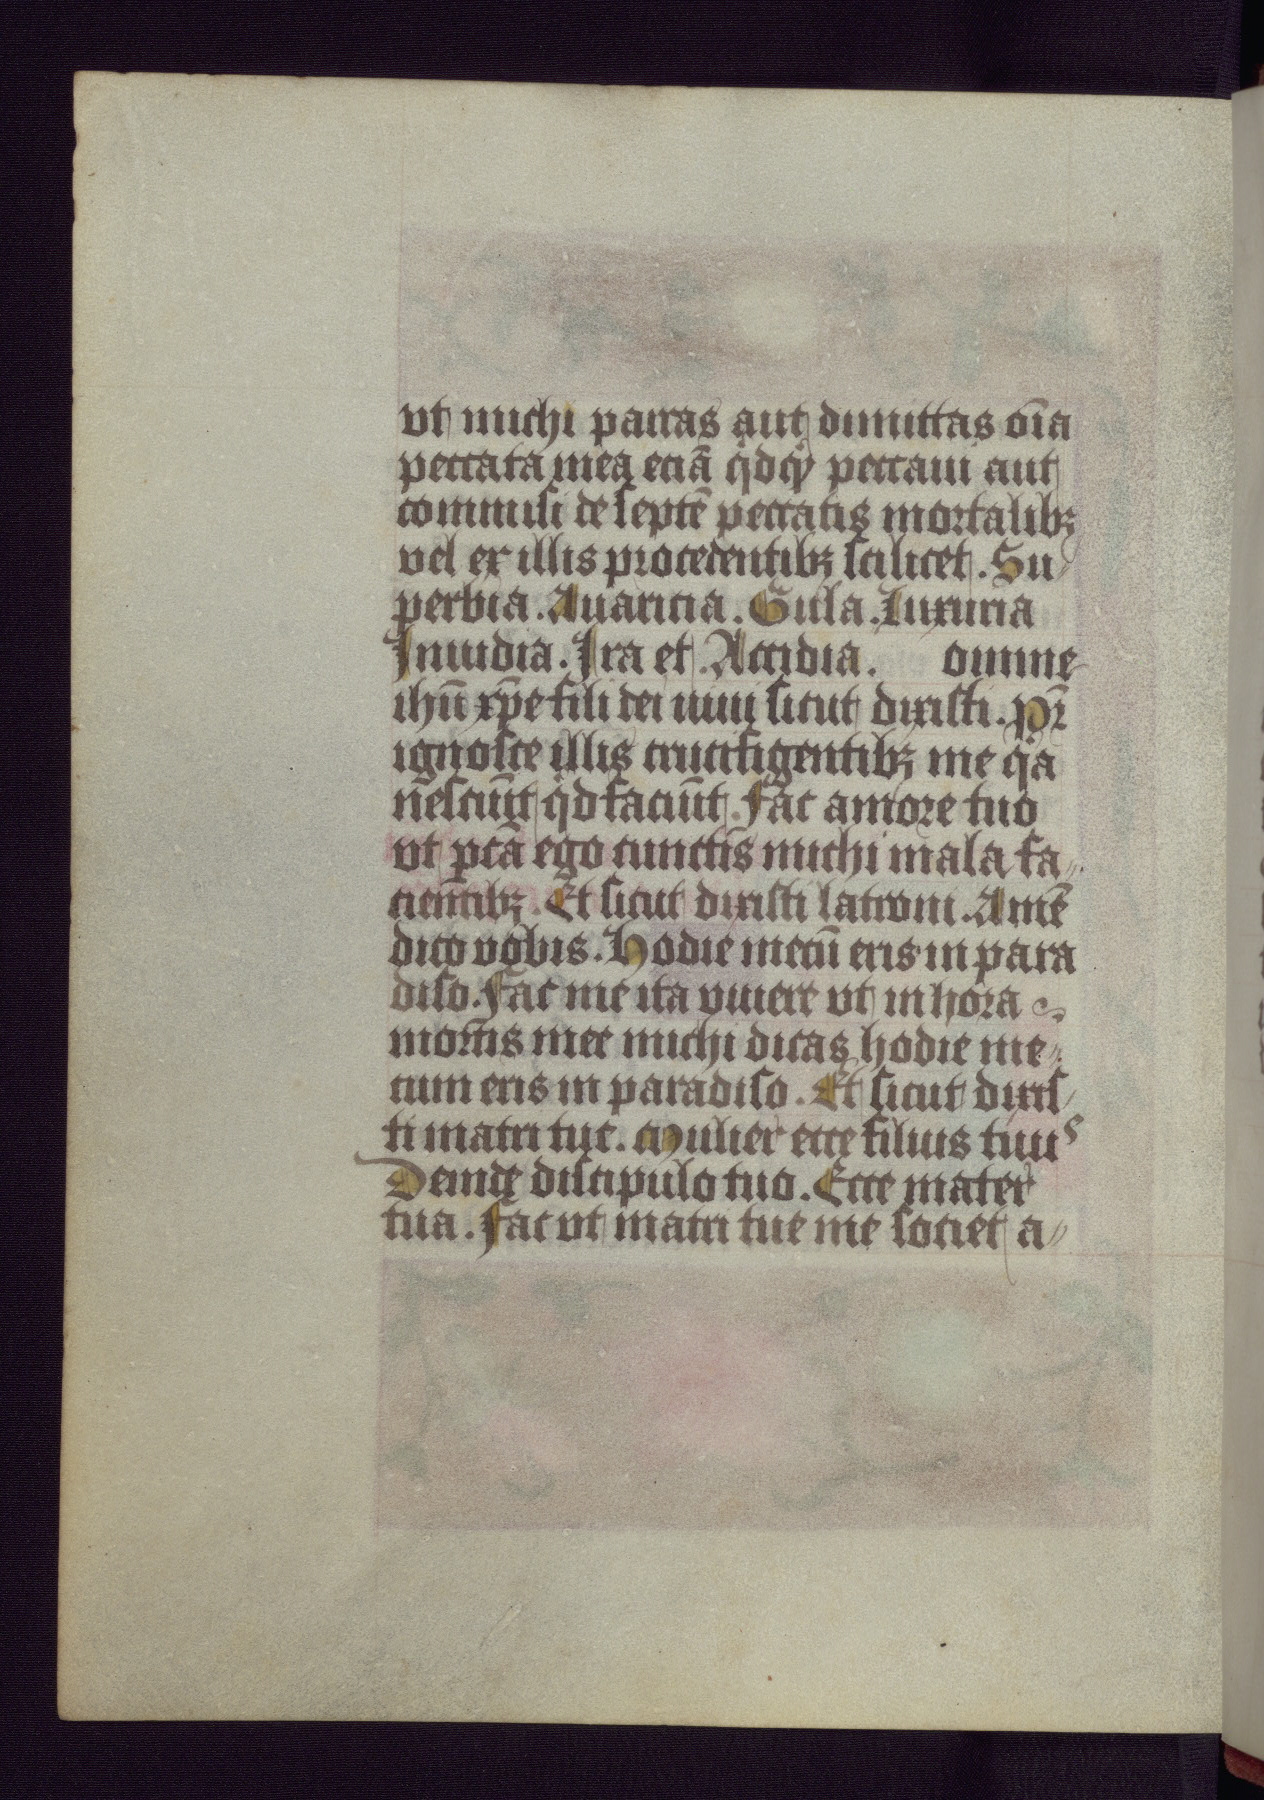 vt michi parcas aut dimittas oīa
peccata mea eciā qͥdqͥd peccaui aut
commisi de septē peccatis mortalibꝫ
vel ex illis procedentibꝫ scilicet. Su
perbia. Auaricia. Gula. Luxuria
Inuidia. Ira et. Accidia. omine
ihū xp̄e fili dei uiui sicut dixisti. pr̄
ignosce illis crucifigentibꝫ me qͥa
nēsciūt qͥd faciūt. Fac amore tuo
vt pcā ego cunctīs michi mala fa
cientibꝫ. Et sicut dixisti latroni. Amē
dico vobis. Hodie mecū eris in para
diso. Fac me ita viuere vt in hora
mortis mee michi dicas hodie me
cum eris in paradiso. Et sicut dixis
ti matri tue. Mulier ecce filius tuuˢ
Deinde discipulo tuo. Ecce mater
tua. Fac vt matri tue me societ a